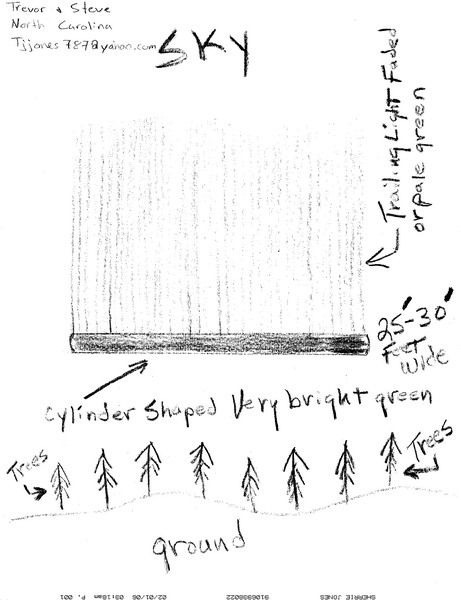 Trevor & Steve
North Carolina
Tjjones787@yahoo.com
SKY
Trailing Light Faded
or pale green
25'-30'
Feet
Wide
Cylinder Shaped Very bright green
Trees
Trees
ground
SHERRIE JONES 9106938022 02/01/06 09:18am P. 001